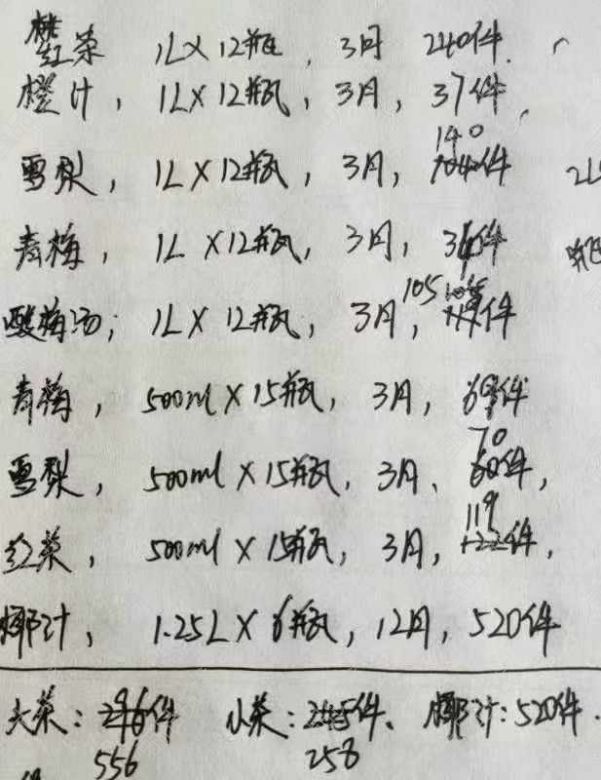 红茶 1L×12瓶, 3月 240件.
橙汁, 1L×12瓶, 3月, 37件,
140
雪梨, 1L×12瓶, 3月, 件
青梅, 1L×12瓶, 3月, 36件
105
酸梅汤, 1L×12瓶, 3月, 件
青梅, 500ml×15瓶, 3月, 69件
70
雪梨, 500ml×15瓶, 3月, 60件,
119
红茶, 500ml×15瓶, 3月, 122件,
椰汁, 1.25L×6瓶, 12月, 520件
大茶: 件 小茶: 245件、 椰汁: 520件.
556 258